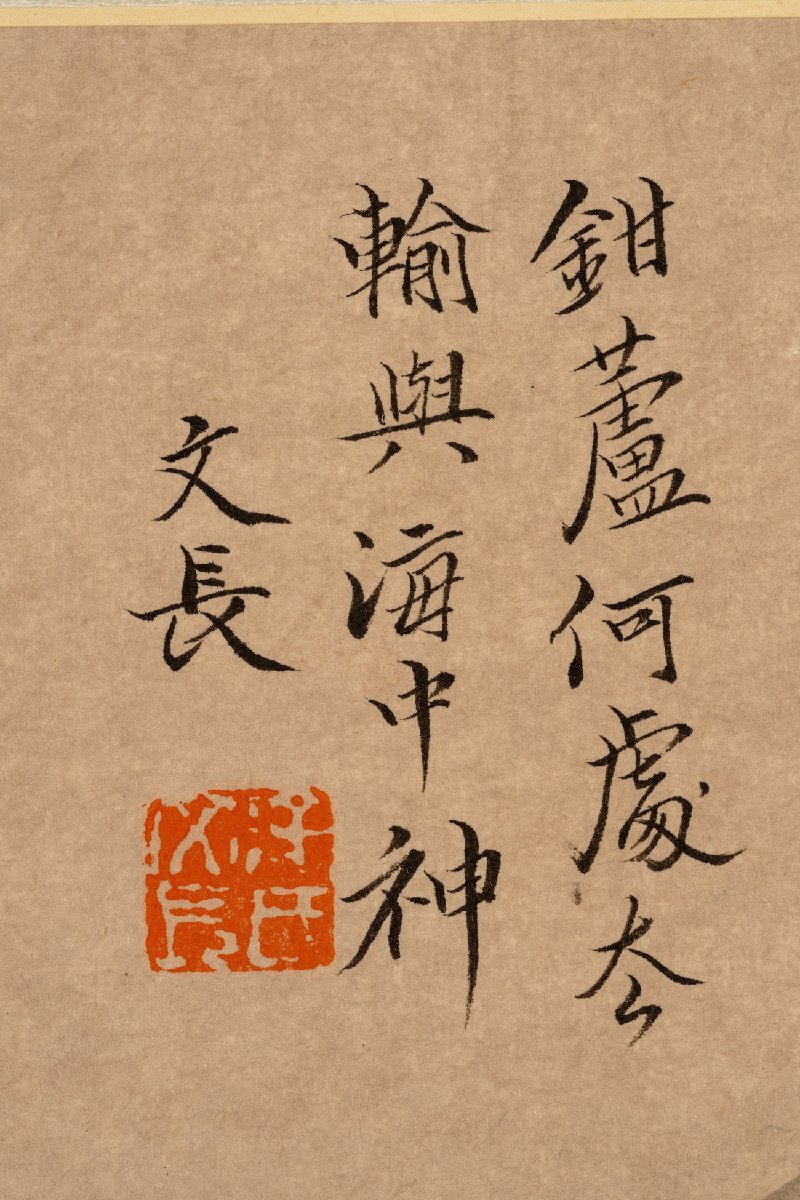 鉗蘆何處厺
輸與海中神
文長